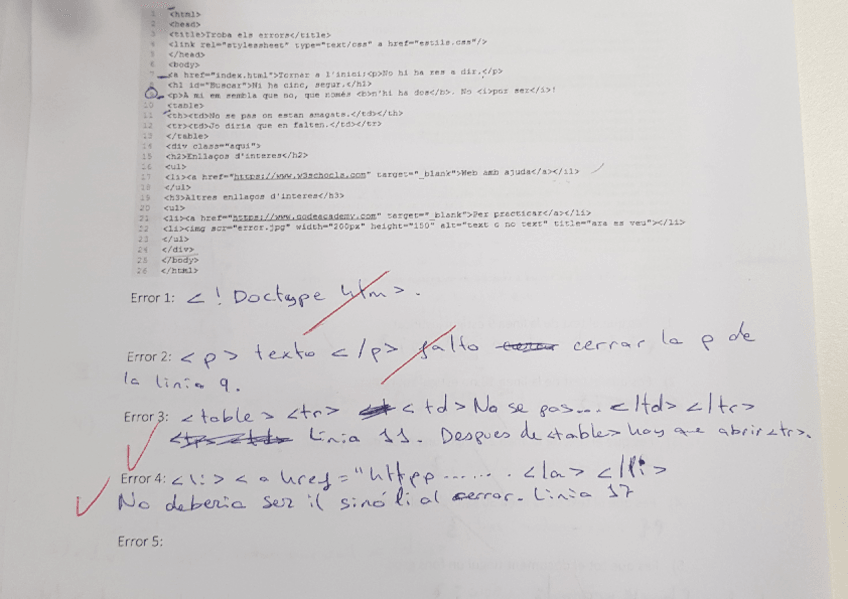 1 <html>
2 <head>
3 <title>Troba els errors</title>
4 <link rel="stylesheet" type="text/css" a href="estils.css"/>
5 </head>
6 <body>
7 <a href="index.html">Tornar a l'inici:<p>No hi ha res a dir.</p>
8 <h1 id="Buscar">Ni ha cinc, segur.</h1>
9 <p>A mi em sembla que no, que només <b>n'hi ha dos</b>. No <i>pas ser</i>!
10 <table>
11 <th><td>No se pas on estan amagats.</td></th>
12 <tr><td>Jo diria que en falten.</td></tr>
13 </table>
14 <div class="aqui">
15 <h2>Enllaços d'interes</h2>
16 <ul>
17 <li><a href="https://www.w3schools.com" target="_blank">Web amb ajuda</a></il>
18 </ul>
19 <h3>Altres enllaços d'interes</h3>
20 <ul>
21 <li><a href="https://www.codeacademy.com" target="_blank">Per practicar</a></li>
22 <li><img scr="error.jpg" width="200px" height="150" alt="text o no text" title="ara es veu"></li>
23 </ul>
24 </div>
25 </body>
26 </html>
Error 1: <! Doctype htm>.
Error 2: <p> texto </p> falto cerrar la p de
la linia 9.
Error 3: <table> <tr> <td> No se pas... </td> </tr>
Linia 11. Despues de <table> hay que abrir <tr>.
Error 4: <li> < a href = "httpp ....... </a> </li>
No deberia ser il sinó li al cerrar. Linia 17
Error 5: